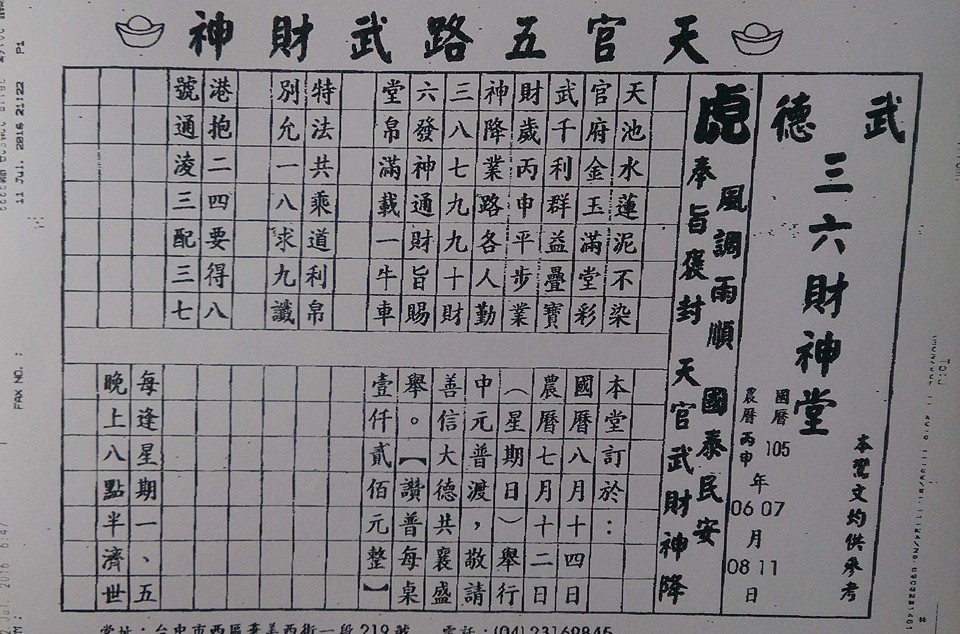 天官五路武財神
武德
三六財神堂
本鸞文均供參考
國曆105年07月11日
農曆丙申 06 08
風調雨順 國泰民安
虎 奉旨褒封 天官武財神降
天池水蓮泥不染
官府金玉滿堂彩
武千利群益疊寶
財歲丙申平步業
神降業路各人勤
三八七九九十財
六發神通財旨賜
堂帛滿載一牛車
特法共乘道利帛
別允一八求九讖
港抱二四要得八
號通凌三配三七
本堂訂於：
國曆八月十四日
農曆七月十二日
（星期日）舉行
中元普渡，敬請
善信大德共襄盛
舉。【讚普每桌
壹仟貳佰元整】
每逢星期一、五
晚上八點半濟世
堂址：台中市西區 美西街一段219號 電話：(04)23169845
11 Jul. 2016 21:22 P1
FAX NO. :